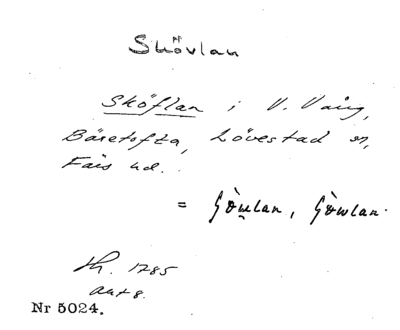 Skövlan
Sköflan i V. Vång,
Bäretofta, Lövestad sn,
Färs hd.
= Gòu̯lan, Gòwlan.
Ht. 1785
akt 8.
Nr 5024.